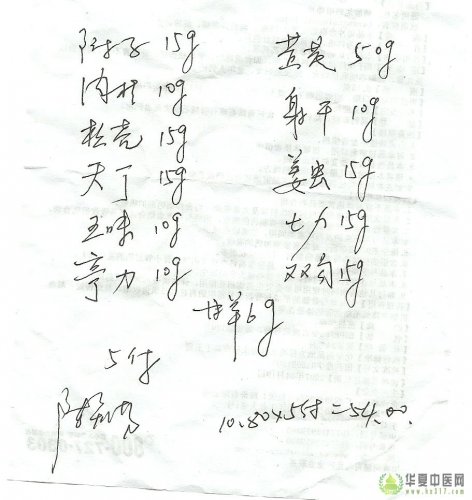 附子 15g 50g
肉桂 10g 射干 10g
枳壳 15g 姜虫 15g
天丁 15g 七力 15g
五味 10g 双勾 15g
亭力 10g
甘草 6g
5付
10.80×5付=54.00
华夏中医网